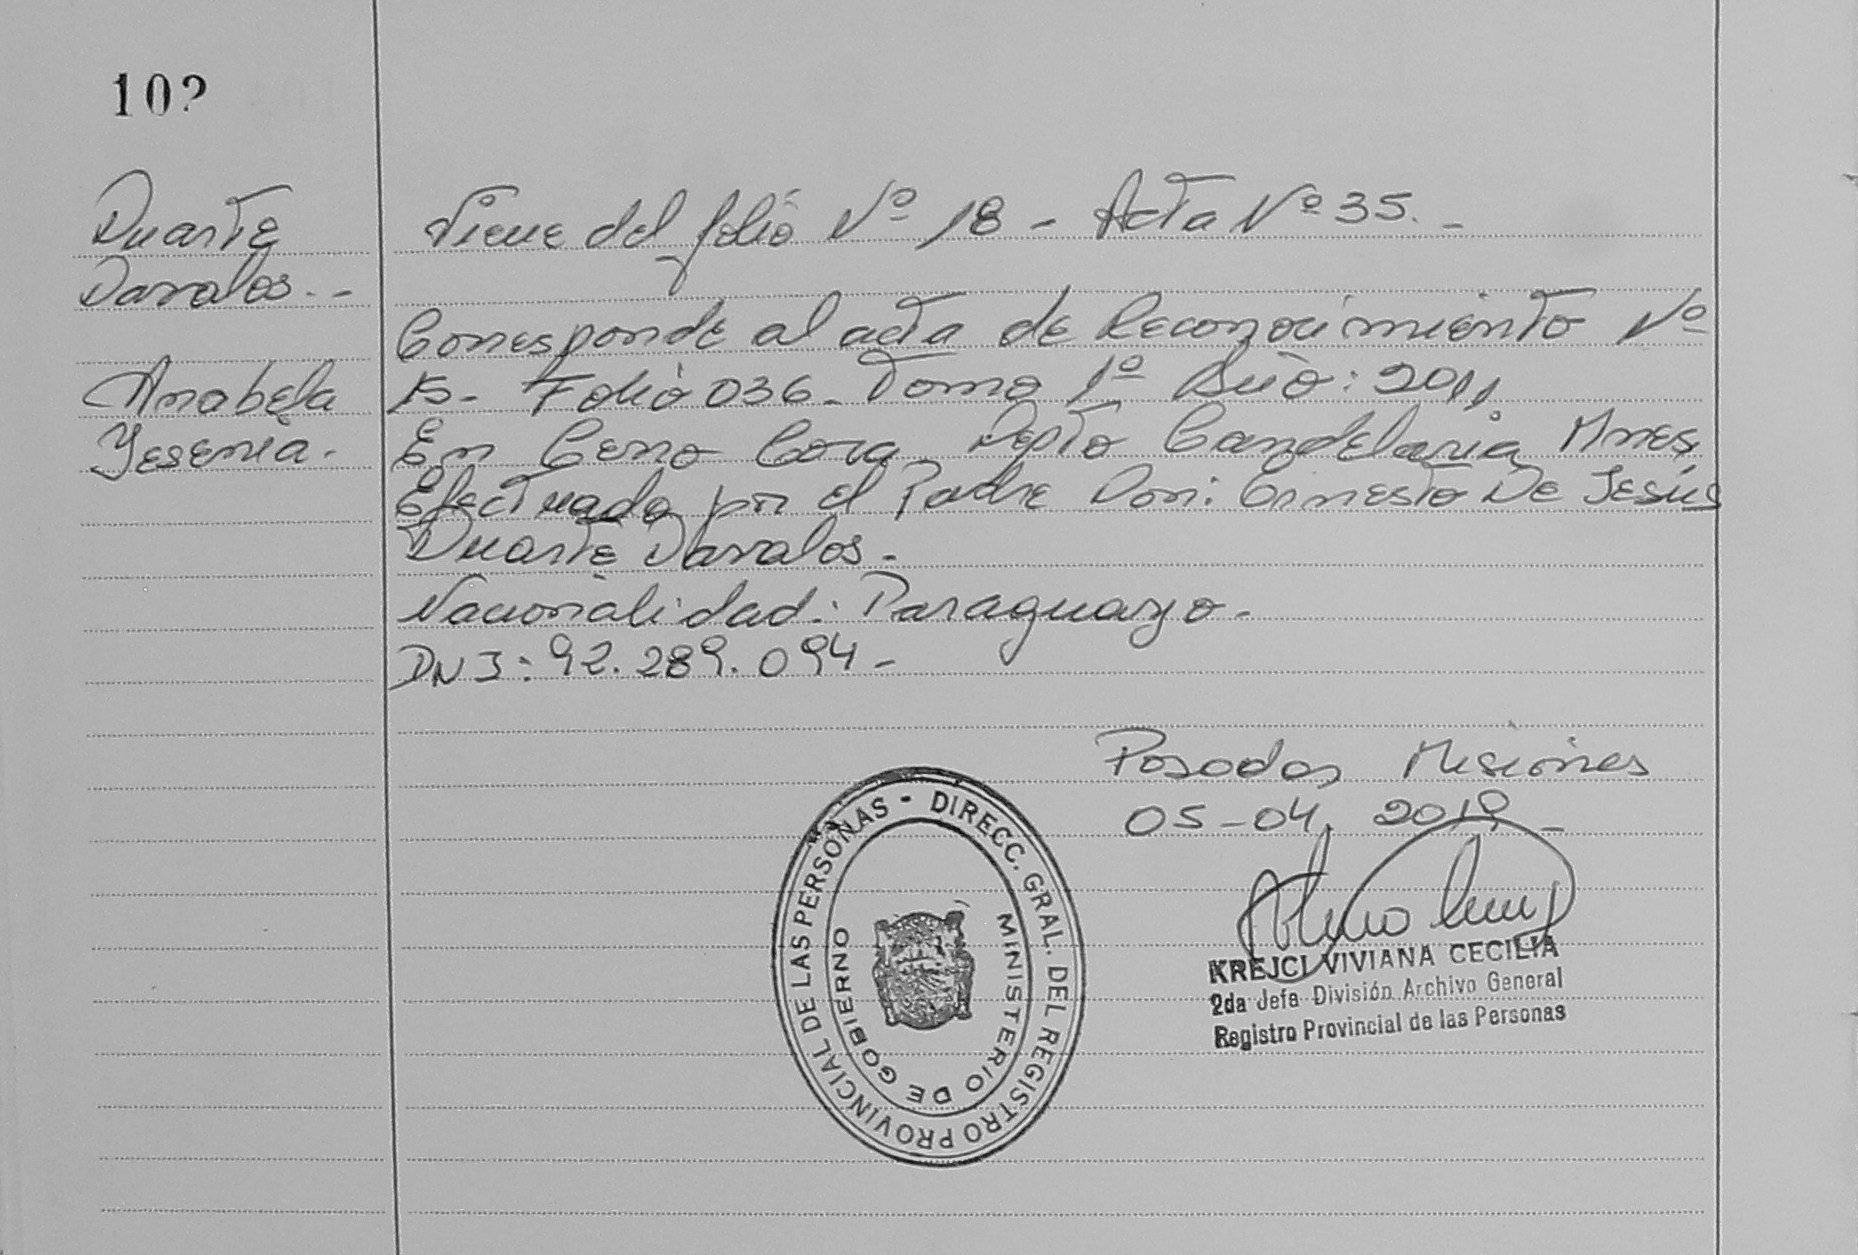 102
Duarte
Davalos. -
Anabela
Yesenia.
Viene del folio Nº 18 - Acta Nº 35. -
Corresponde al acta de Reconocimiento Nº
15 - Folio 036 - Tomo 1º Año: 2011
En Cerro Cora Depto Candelaria, Mnes,
Efectuado por el Padre Don: Ernesto De Jesús
Duarte Davalos -
Nacionalidad: Paraguayo -
DNI: 92.289.094 -
Posadas Misiones
05-04, 2019 -
DIRECC. GRAL. DEL REGISTRO PROVINCIAL DE LAS PERSONAS -
MINISTERIO DE GOBIERNO
KREJCI VIVIANA CECILIA
2da Jefa División Archivo General
Registro Provincial de las Personas